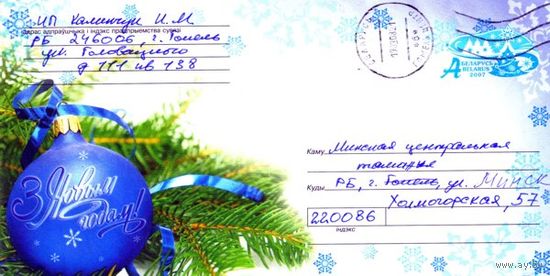 ИП Калинчук И.М
адрас адпраўшчыка і індэкс прадпрыемства сувязі
РБ 246006, г. Гомель
ул. Головацкого
д 111 кв 138
БЕЛАРУСЬ
BELARUS
2007
A
З Новым
годам!
Каму Минская центральная
таможня
Куды РБ, г. Гомель, ул. МИНСК
Холмогорская, 57
220086
індэкс
www.ay.by